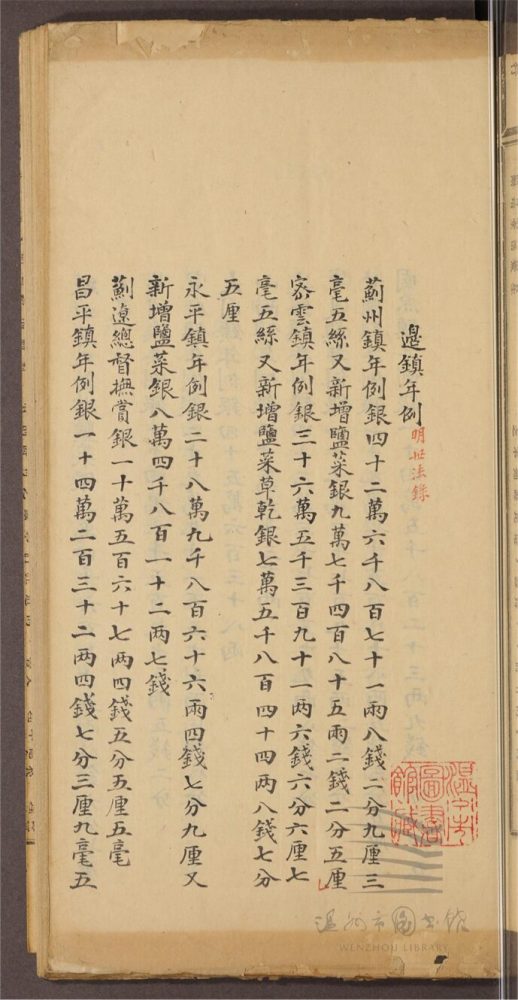 邊鎮年例 明世法錄
薊州鎮年例銀四十二萬六千八百七十一兩八錢二分九厘三
毫五絲又新增鹽菜銀九萬七千四百八十五兩二錢二分五厘
密雲鎮年例銀三十六萬五千三百九十一两六錢六分六厘七
毫五絲又新增鹽菜草乾銀七萬五千八百四十四两八錢七分
五厘
永平鎮年例銀二十八萬九千八百六十六兩四錢七分九厘又
新增鹽菜銀八萬四千八百一十二两七錢
薊遼總督撫賞銀一十萬五百六十七两四錢五分五厘五毫
昌平鎮年例銀一十四萬二百三十二两四錢七分三厘九毫五
溫州市圖書館藏
溫州市圖書館
WENZHOU LIBRARY